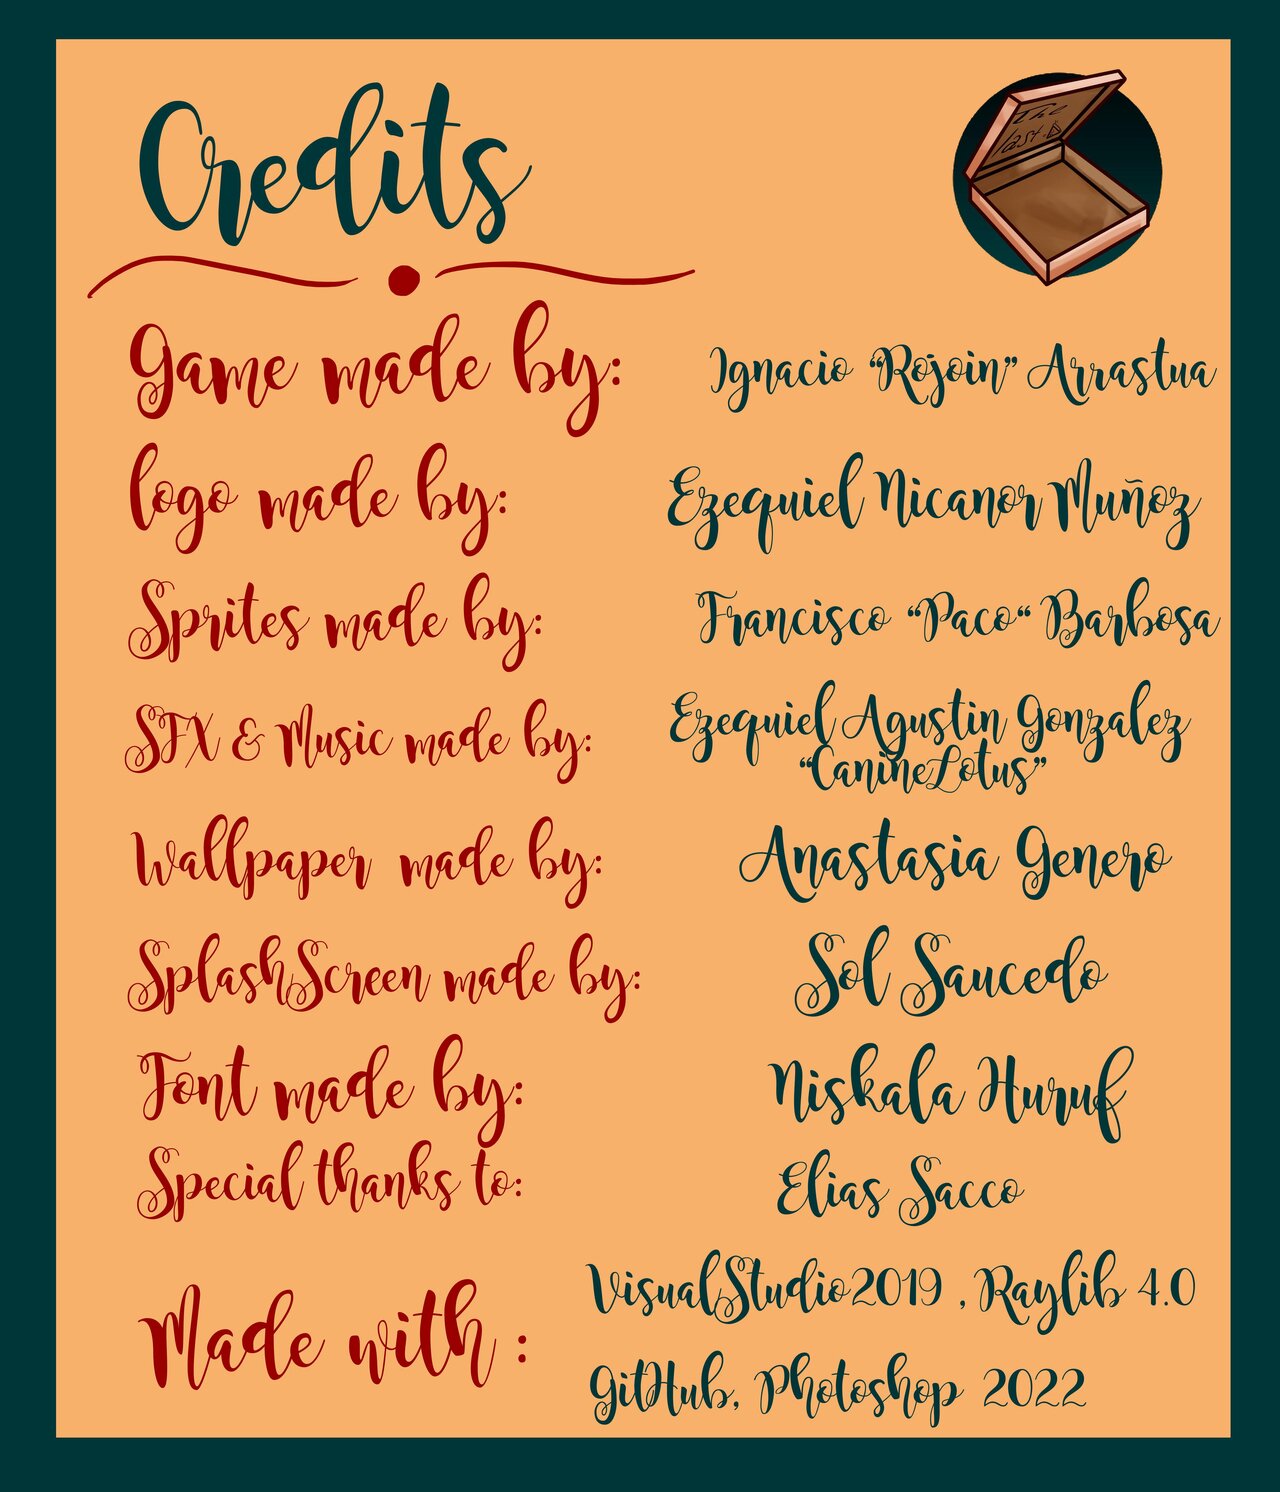 Credits
The
last
Game made by: Ignacio “Rojoin” Arrastua
logo made by: Ezequiel Nicanor Muñoz
Sprites made by: Francisco “Paco“ Barbosa
SFX & Music made by: Ezequiel Agustin Gonzalez
“CanineLotus”
Wallpaper made by: Anastasia Genero
SplashScreen made by: Sol Saucedo
Font made by: Niskala Huruf
Special thanks to: Elias Sacco
Made with : VisualStudio2019 , Raylib 4.0
GitHub, Photoshop 2022